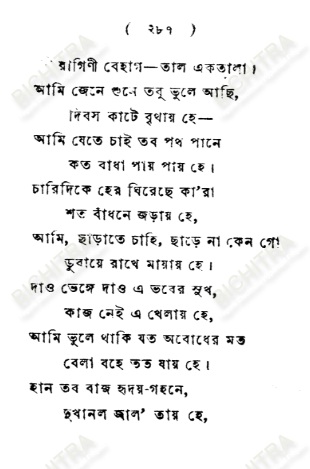 ( ২৮৭ )
রাগিণী বেহাগ—তাল একতালা।
আমি জেনে শুনে তবু ভুলে আছি,
দিবস কাটে বৃথায় হে—
আমি যেতে চাই তব পথ পানে
কত বাধা পায় পায় হে।
চারিদিকে হের ঘিরেছে কা'রা
শত বাঁধনে জড়ায় হে,
আমি, ছাড়াতে চাহি, ছাড়ে না কেন গো
ডুবায়ে রাখে মায়ায় হে।
দাও ভেঙ্গে দাও এ ভবের সুখ,
কাজ নেই এ খেলায় হে,
আমি ভুলে থাকি যত অবোধের মত
বেলা বহে তত যায় হে।
হান তব বাজ হৃদয়-গহনে,
দুখানল জ্বাল' তায় হে,
BICHITRA
BICHITRA
BICHITRA
BICHITRA
BICHITRA
BICHITRA